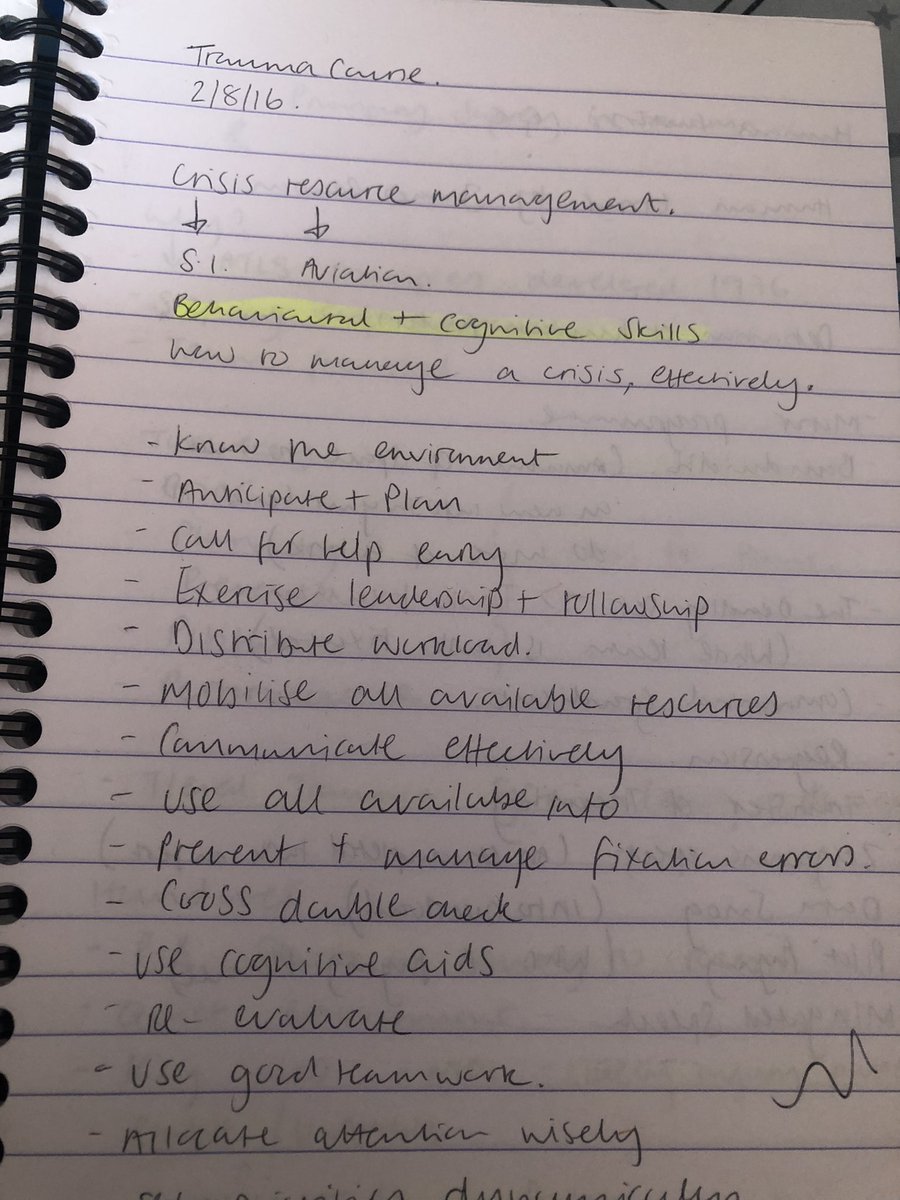 Trauma Course.
2/8/16.
Crisis resource management.
↓ ↓
S.I. Aviation.
Behavioural + cognitive skills
how to manage a crisis, effectively.
- Know the environment
- Anticipate + Plan
- Call for help early
- Exercise leadership + followship
- Distribute workload.
- Mobilise all available resources
- Communicate effectively
- use all available info
- prevent + manage fixation errors.
- Cross double check
- use cognitive aids
- Re-evaluate
- use good teamwork.
- Allocate attention wisely